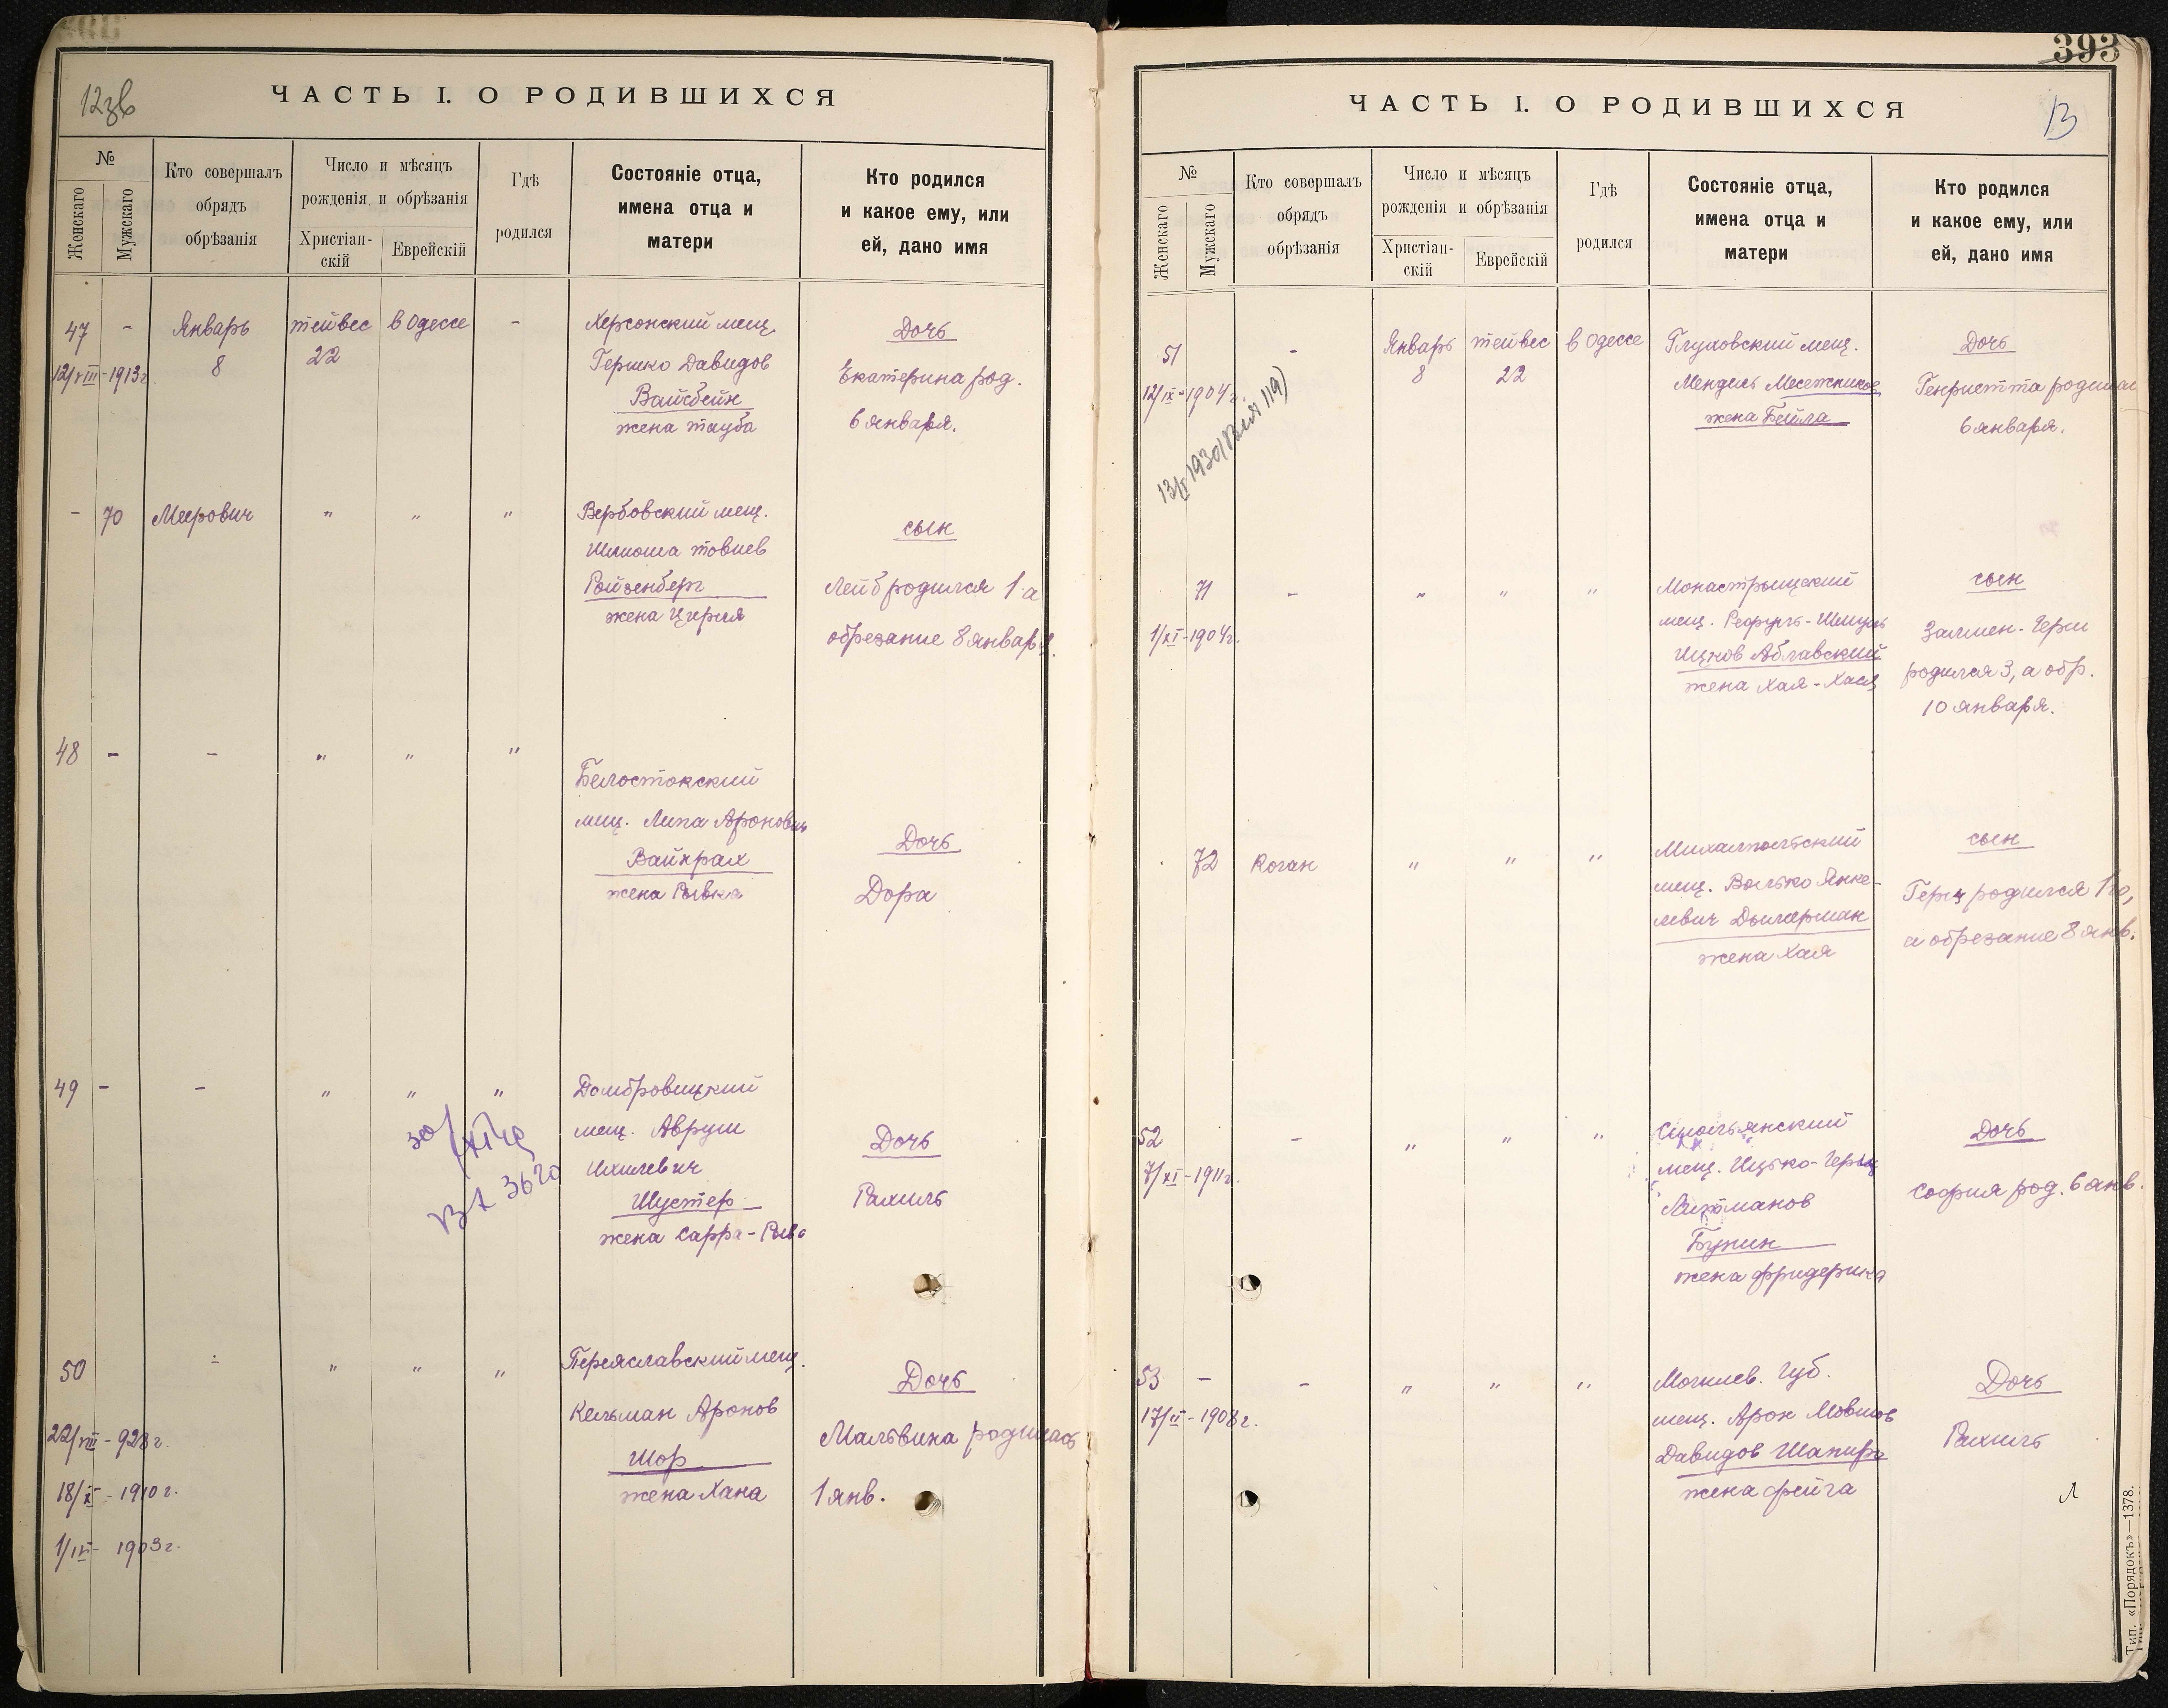 12зв
ЧАСТЬ I. О РОДИВШИХСЯ
№
Женскаго
Мужскаго
Кто совершалъ
обрядъ
обрѣзанія
Число и мѣсяцъ
рожденія и обрѣзанія
Христіан-
скій
Еврейскій
Гдѣ
родился
Состояніе отца,
имена отца и
матери
Кто родился
и какое ему, или
ей, дано имя
47 - Январь тейвес в Одессе -
8 22
12/VIII-1913г.
Херсонский мещ.
Гершко Давидов
Вайсбейн
жена Тауба
Дочь
Екатерина род.
6 января.
- 70 Меерович " " "
Вербовский мещ.
Шлиома Товиев
Ройзенберг
жена Цирля
сын
Лейб родился 1 а
обрезание 8 января.
48 - - " " "
Белостокский
мещ. Липа Аронович
Вайкрах
жена Рывка
Дочь
Дора
49 - - " " "
Домбровицкий
мещ. Авруш
Ихилевич
Шустер
жена Сарра-Рыва
Дочь
Рахиль
50 - " " "
22/VIII-928г.
18/X-1910г.
1/IV-1903г.
Переяславский мещ.
Кельман Аронов
Шор
жена Хана
Дочь
Мальвина родилась
1 янв.
393
13
ЧАСТЬ I. О РОДИВШИХСЯ
№
Женскаго
Мужскаго
Кто совершалъ
обрядъ
обрѣзанія
Число и мѣсяцъ
рожденія и обрѣзанія
Христіан-
скій
Еврейскій
Гдѣ
родился
Состояніе отца,
имена отца и
матери
Кто родился
и какое ему, или
ей, дано имя
51 - Январь тейвес в Одессе
8 22
12/IX-1904г.
Глуховский мещ.
Мендель Месежников
жена Бейла
Дочь
Генриетта родилась
6 января.
71 - " " "
1/XI-1904г.
Монастрыщский
мещ.
Ицков Аблавский
жена Хая-Хася
сын
Залмен-Герш
родился 3, а обр.
10 января.
72 Коган " " "
Михалпольский
мещ. Волько Янке-
левич
жена Хая
сын
Герц родился 1го,
а обрезание 8 янв.
52 - " " "
7/XI-1911г.
мещ. Ицько-Герш
Литманов
Бунин
жена Фридерика
Дочь
София род. 6 янв.
53 - - " " "
17/II-1908г.
Могилев. губ.
мещ. Арон Мовшов
Давидов Шапиро
жена Фейга
Дочь
Рахиль
Тип. «Порядокъ»—1378.